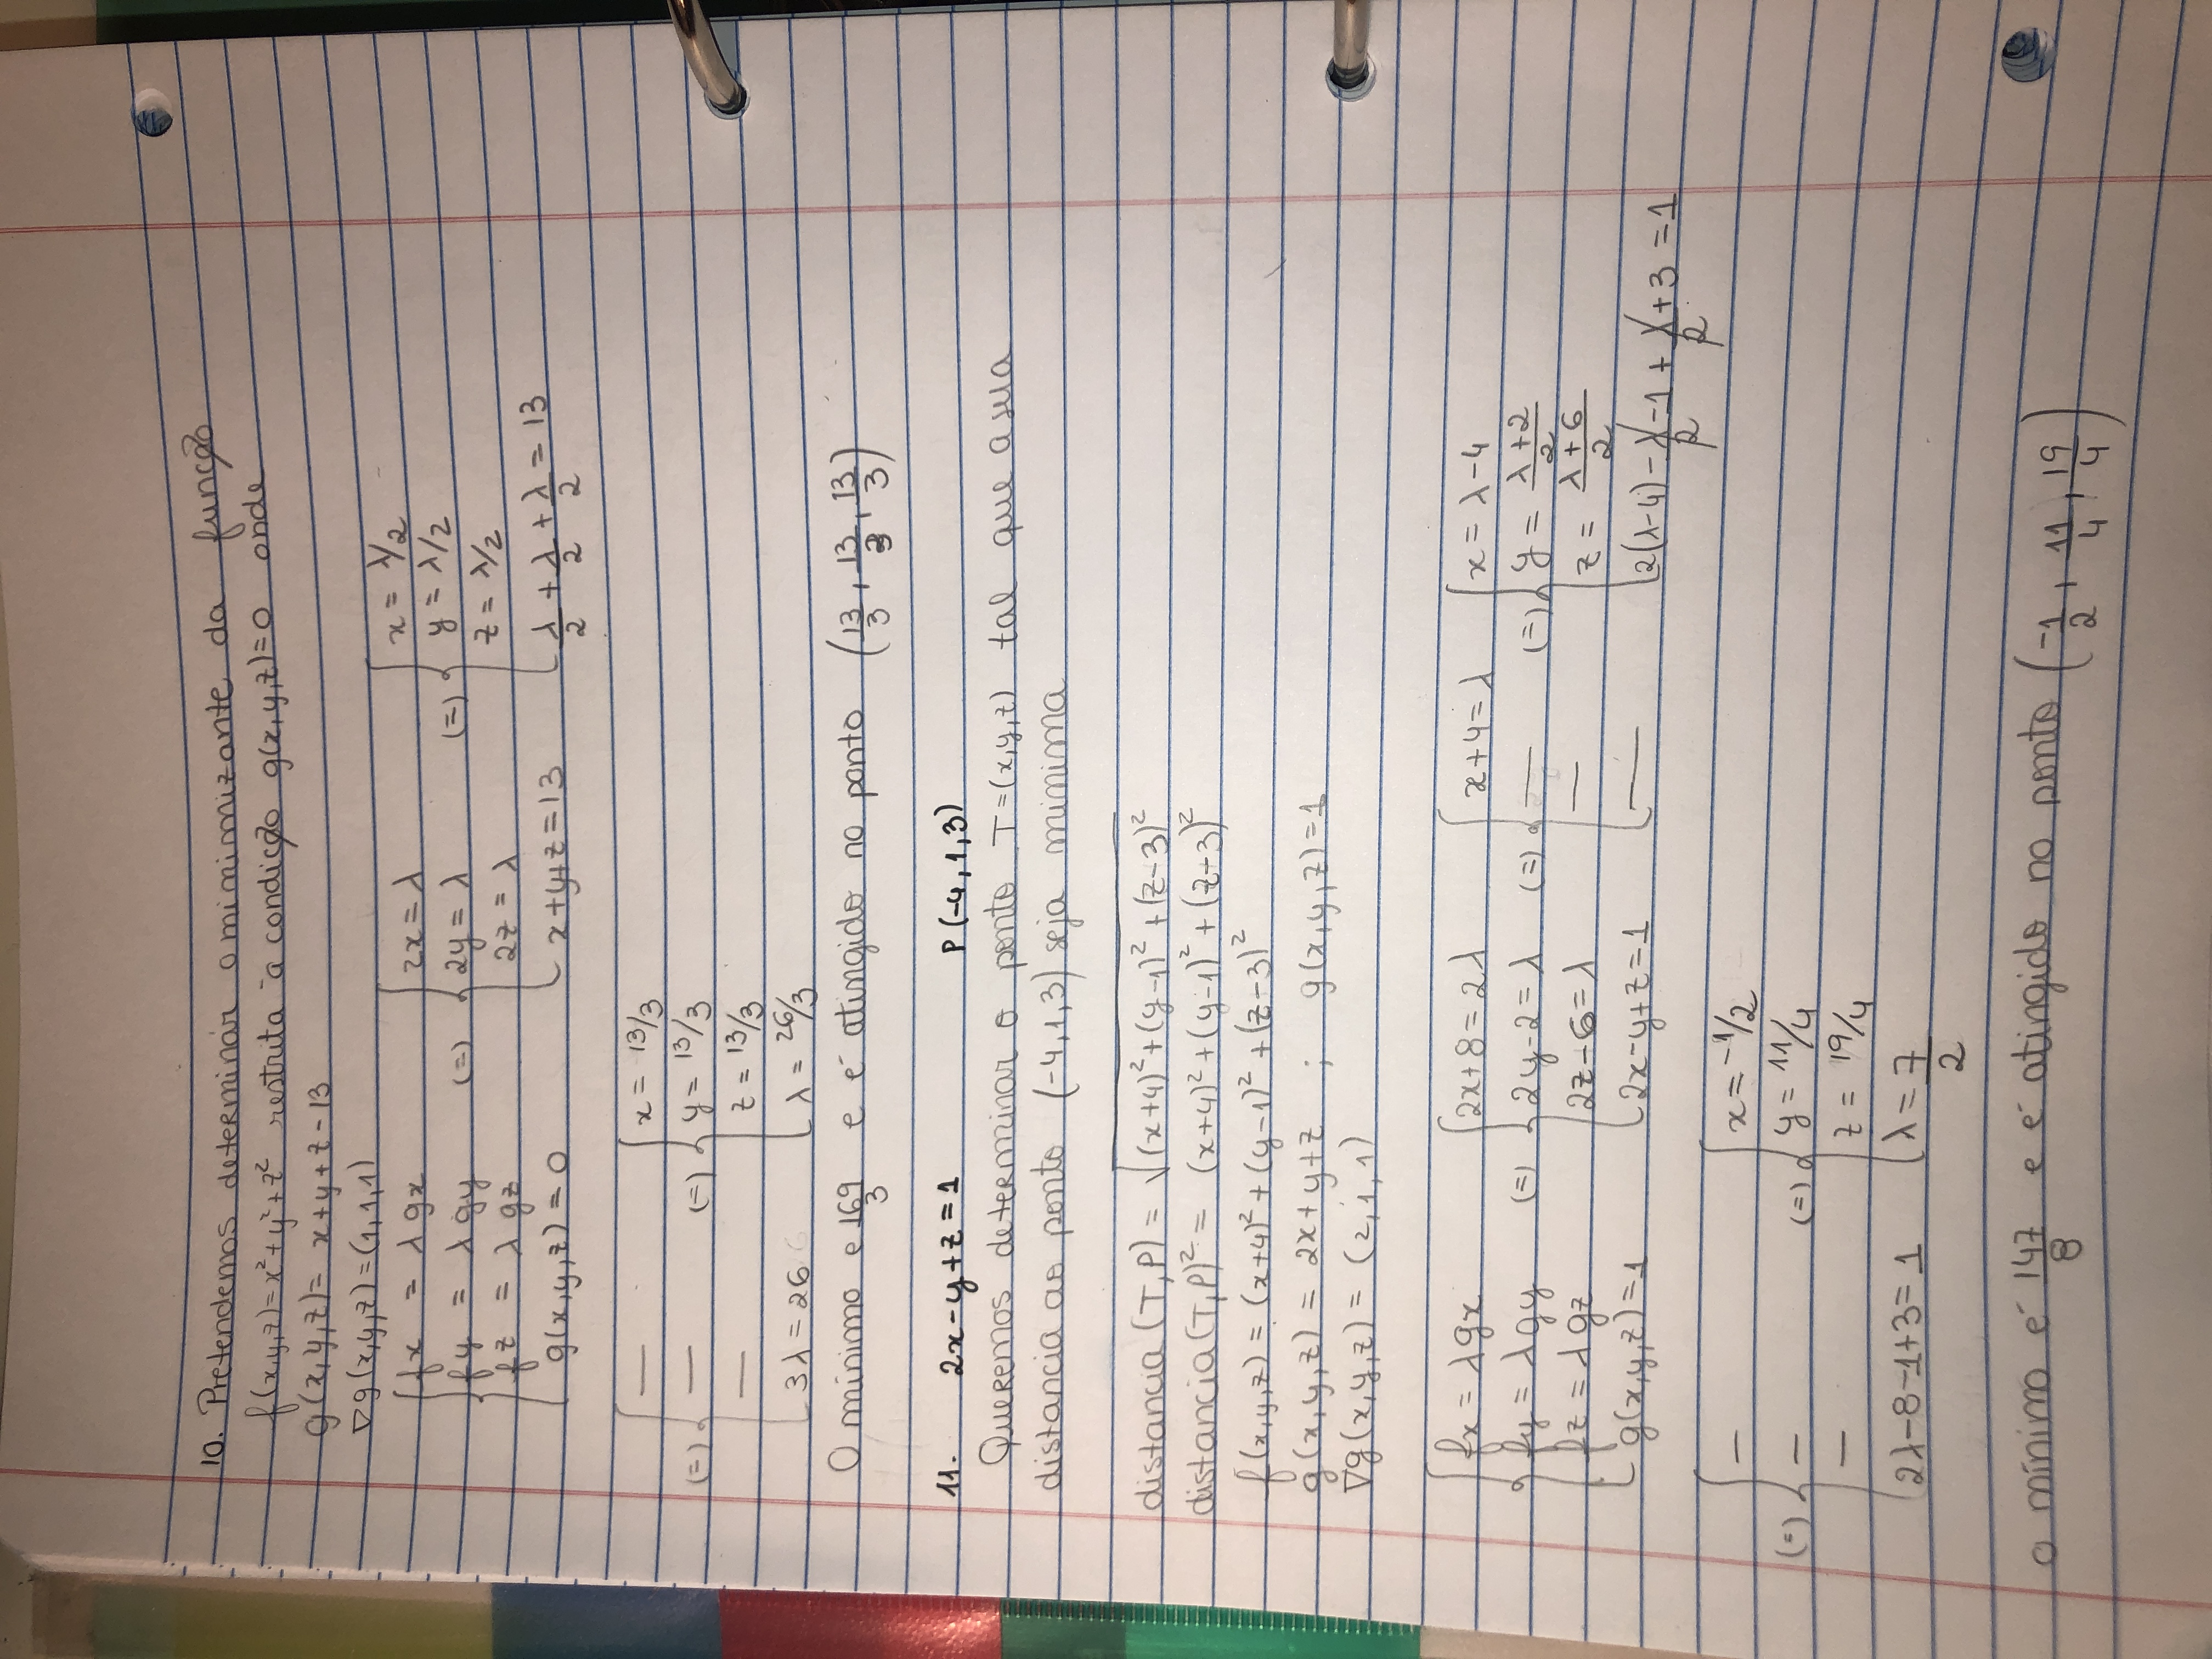 10. Pretendemos determinar o minimizante da função
f(x,y,z)=x²+y²+z² restrita à condição g(x,y,z)=0 onde
g(x,y,z)= x+y+z-13
∇g(x,y,z)=(1,1,1)
{ fx = λ gx (=) { 2x=λ (=) { x = λ/2
fy = λ gy 2y=λ y = λ/2
fz = λ gz 2z=λ z = λ/2
g(x,y,z)=0 x+y+z=13 λ/2 + λ/2 + λ/2 = 13
(=) { — (=) { x = 13/3
— y = 13/3
— z = 13/3
3λ=26 λ = 26/3
O mínimo e 169/3 e é atingido no ponto (13/3, 13/3, 13/3)
11. 2x-y+z=1 P(-4,1,3)
Queremos determinar o ponto T=(x,y,z) tal que a sua
distancia ao ponto (-4,1,3) seja minima
distancia (T,P) = √(x+4)²+(y-1)²+(z-3)²
distancia(T,P)² = (x+4)²+(y-1)²+(z-3)²
f(x,y,z) = (x+4)²+(y-1)²+(z-3)²
g(x,y,z) = 2x+y+z ; g(x,y,z)=1
∇g(x,y,z) = (2,1,1)
{ fx = λgx (=) { 2x+8=2λ (=) { x+4=λ (=) { x=λ-4
fy = λgy 2y-2=λ — y = λ+2/2
fz = λgz 2z-6=λ — z = λ+6/2
g(x,y,z)=1 2x-y+z=1 — 2(λ-4)-λ/2-1+λ/2+3=1
(=) { — (=) { x=-1/2
— y = 11/4
— z = 19/4
2λ-8-1+3=1 λ=7/2
o mínimo é 147/8 e é atingido no ponto (-1/2, 11/4, 19/4)